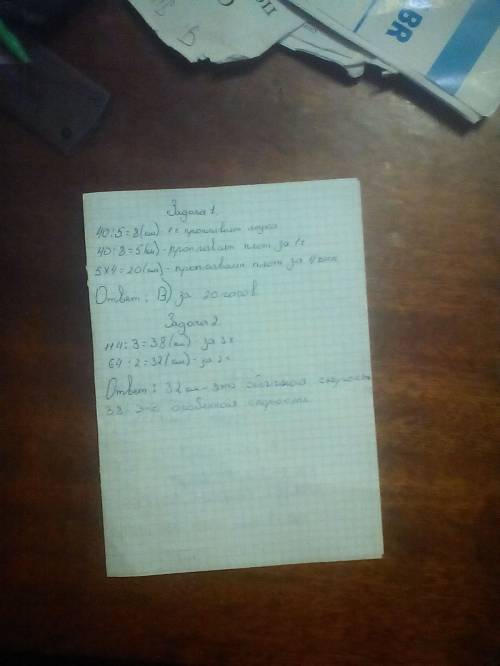 BR
Задача 1.
40:5=8(км) 1ч проплывает лодка
40:8=5(км)-проплывает плот за 1ч
5х4=20(км)-проплывает плот за 4 часа
Ответ: В) за 20 часов
Задача 2
114:3=38(км) за 3ч
64:2=32(км)-за 2ч
Ответ: 32 км-это обычная скорость
38 это особенная скорость